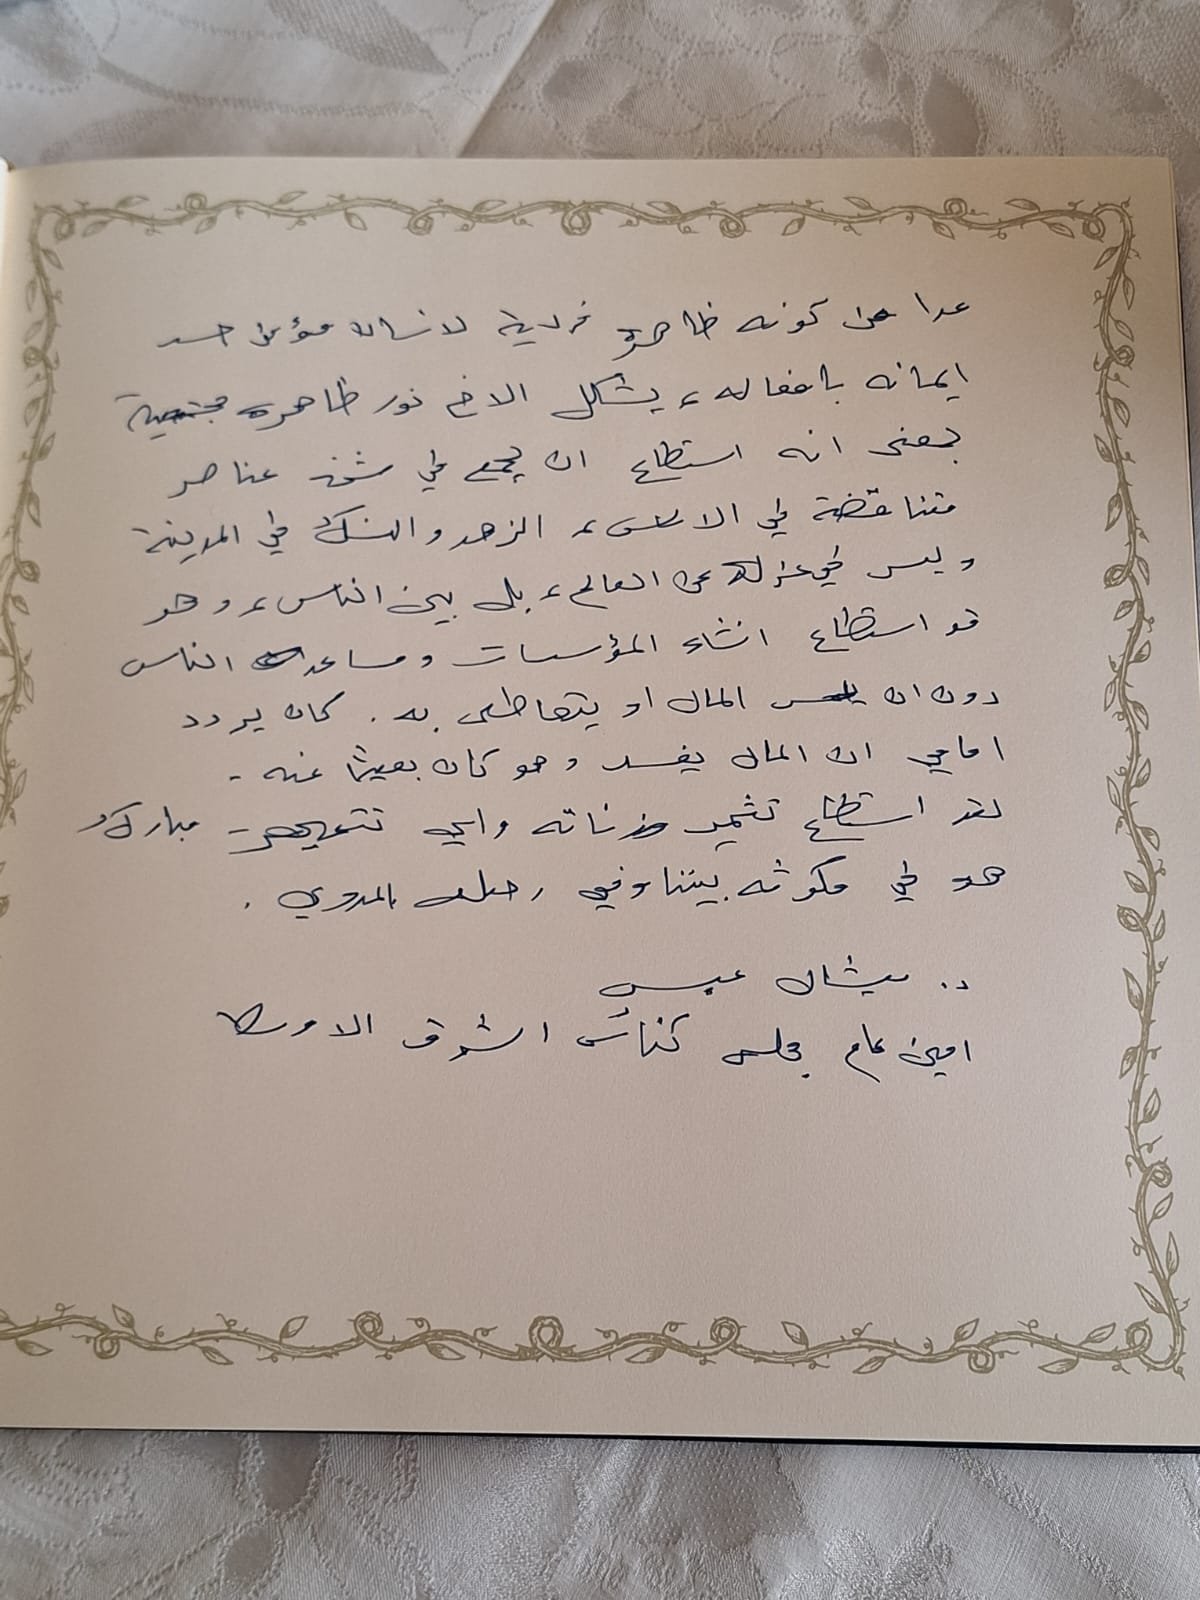 عدا عن كونه ظاهرة فردية لانسان مؤمن جسد
ايمانه بافعاله، يشكل الاخ نور ظاهرة مجتمعية
بمعنى انه استطاع ان يجمع في شخصه عناصر
متناقضة في الاساس، الزهد والنسك في المدينة
وليس في عزلة عن العالم، بل بين الناس، وهو
قد استطاع انشاء المؤسسات ومساعدة الناس
دون ان يلمس المال او يتعاطى به. كان يردد
امامي ان المال يفسد وهو كان بعيدًا عنه -
لقد استطاع تثمير وزناته والتي مبارك
هو في مكوثه بيننا وفي رحيله المدوي.
د. ميشال عبس
امين عام مجلس كنائس الشرق الاوسط